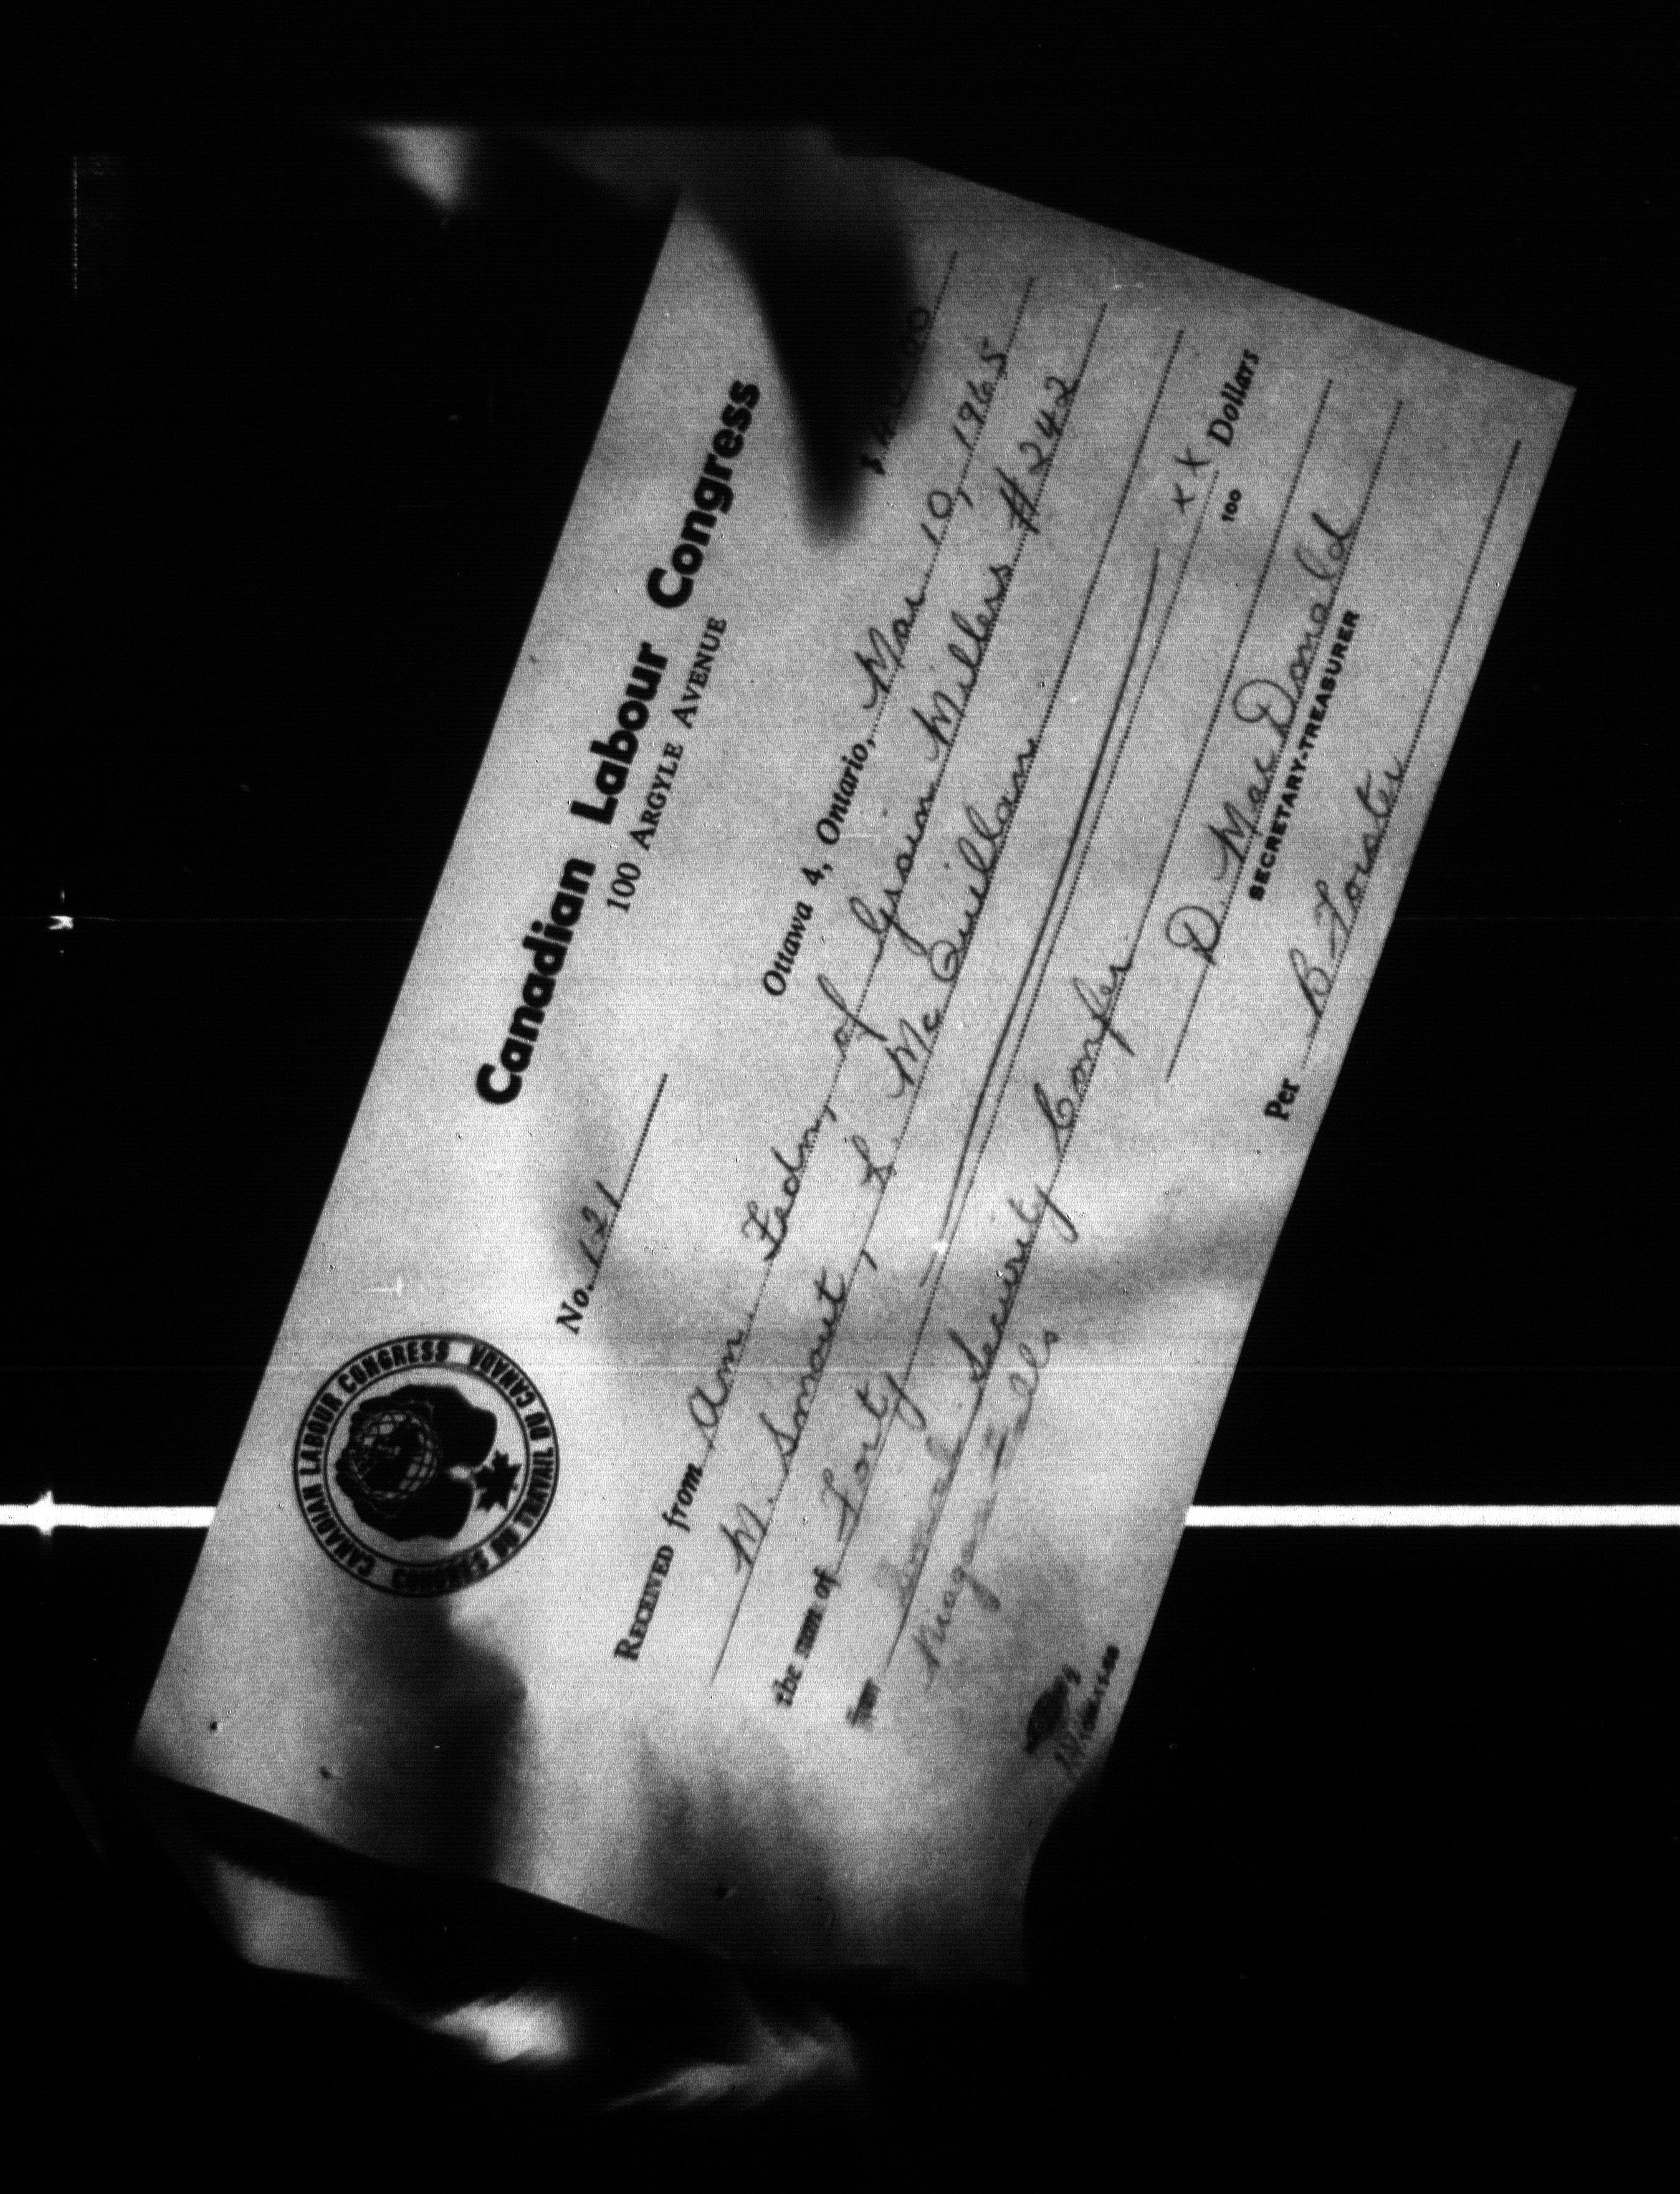 CANADIAN LABOUR CONGRESS
CONGRÈS DU TRAVAIL DU CANADA
Canadian Labour Congress
100 ARGYLE AVENUE
No. 121
$ 40.00
Ottawa 4, Ontario, Mar 10, 1965
RECEIVED from Am. Fedn, of Grain Millers # 242
M. Smart, L. McQuillan
the sum of Forty xx/100 Dollars
Social Security Confer
Niagara Falls
D. MacDonald
SECRETARY-TREASURER
Per B Forster